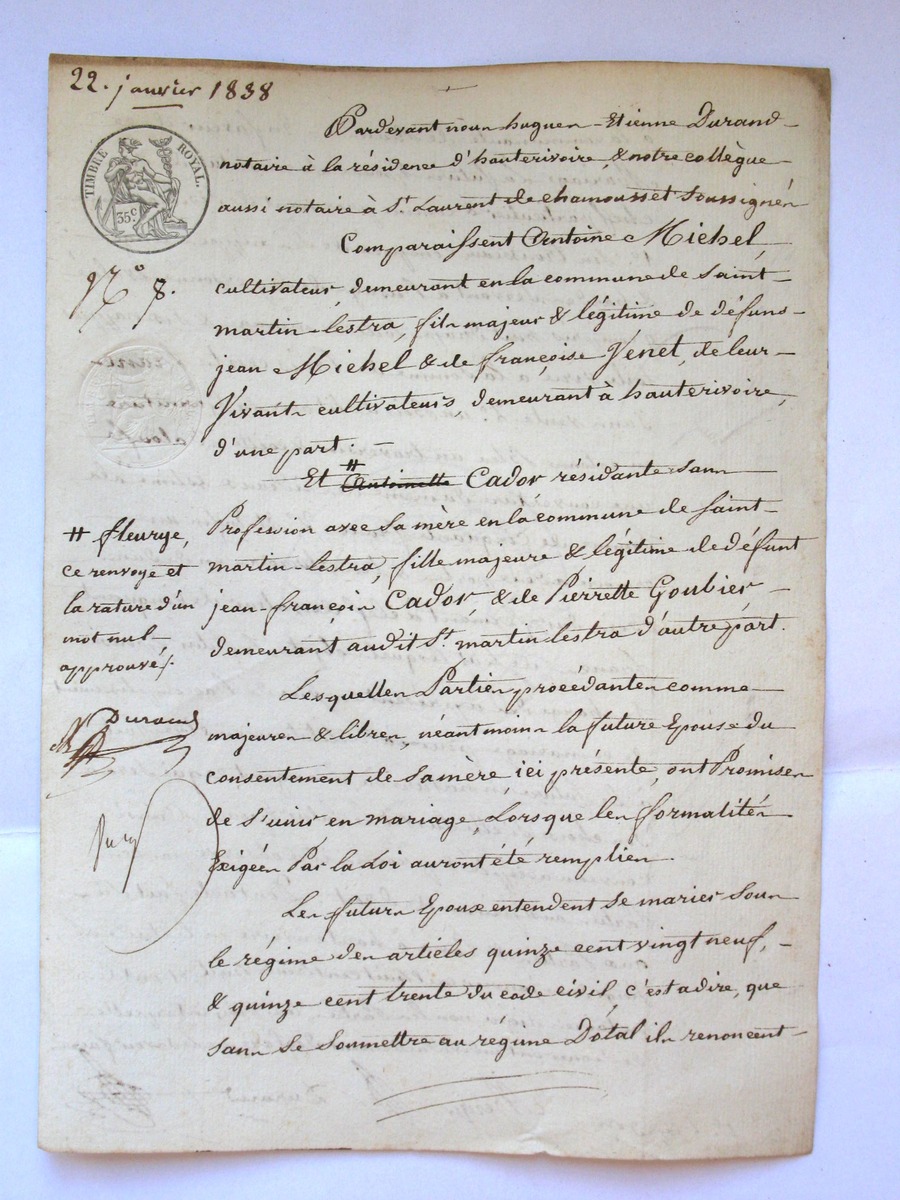 22. janvier 1838
TIMBRE ROYAL.
35 c.
N° 8.
Pardevant nous hugues-Etienne Durand
notaire à la résidence d'hauterivoire, & notre collègue
aussi notaire à St. Laurent de chamousset soussignés
Comparaissent Antoine Michel,
cultivateur, demeurant en la commune de saint-
martin-lestra, fils majeur & légitime de défuns
jean Michel & de françoise Venet, de leur-
Vivants cultivateurs, demeurant à hauterivoire,
d'une part. –
Et # Antoinette Cador résidante sans
Profession avec sa mère en la commune de saint-
martin-lestra, fille majeure & légitime de défunt
jean-françois Cador, & de Pierrette Goubier
demeurant audit St. martin lestra d'autre part.
# fleurye,
ce renvoye et
la rature d'un
mot nul
approuvés/.
Durand
Lesquelles Parties procédantes comme
majeures & libres, néantmoins la future Epouse du
consentement de sa mère ici présente, ont Promises
de s'unir en mariage, Lorsque les formalités
Exigées Par la Loi auront été remplies.
Les futurs Epoux entendent se marier sous
le régime des articles quinze cent vingt neuf,
& quinze cent trente du code civil, c'est adire, que
sans se soumettre au régime Dotal ils renoncent